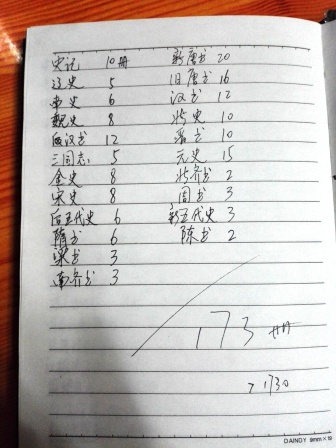 史记 10册
辽史 5
南史 6
魏史 8
后汉书 12
三国志 5
金史 8
宋史 8
旧五代史 6
隋书 6
梁书 3
南齐书 3
新唐书 20
旧唐书 16
汉书 12
北史 10
晋书 10
元史 15
北齐书 2
周书 3
新五代史 3
陈书 2
173册
1730
DAINDY 9mm×